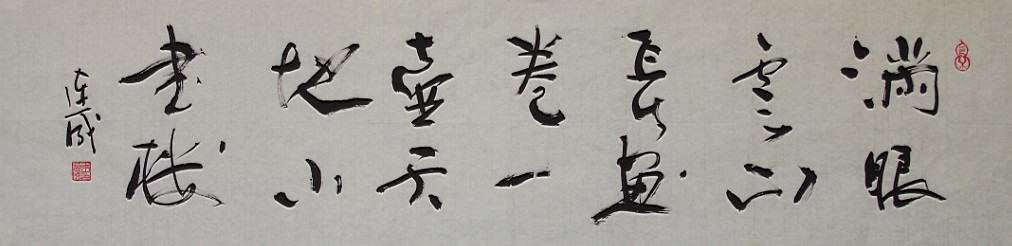 满眼
云山
长画
卷一
壶天
地小
书楼
连成